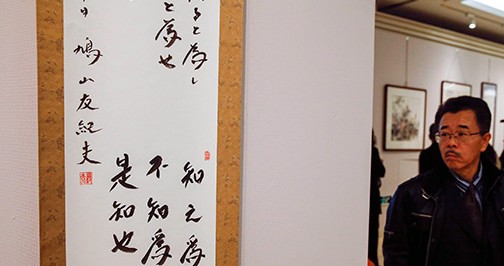 知之為
不知為
是知也
ると為し
と為
鳩山友紀夫